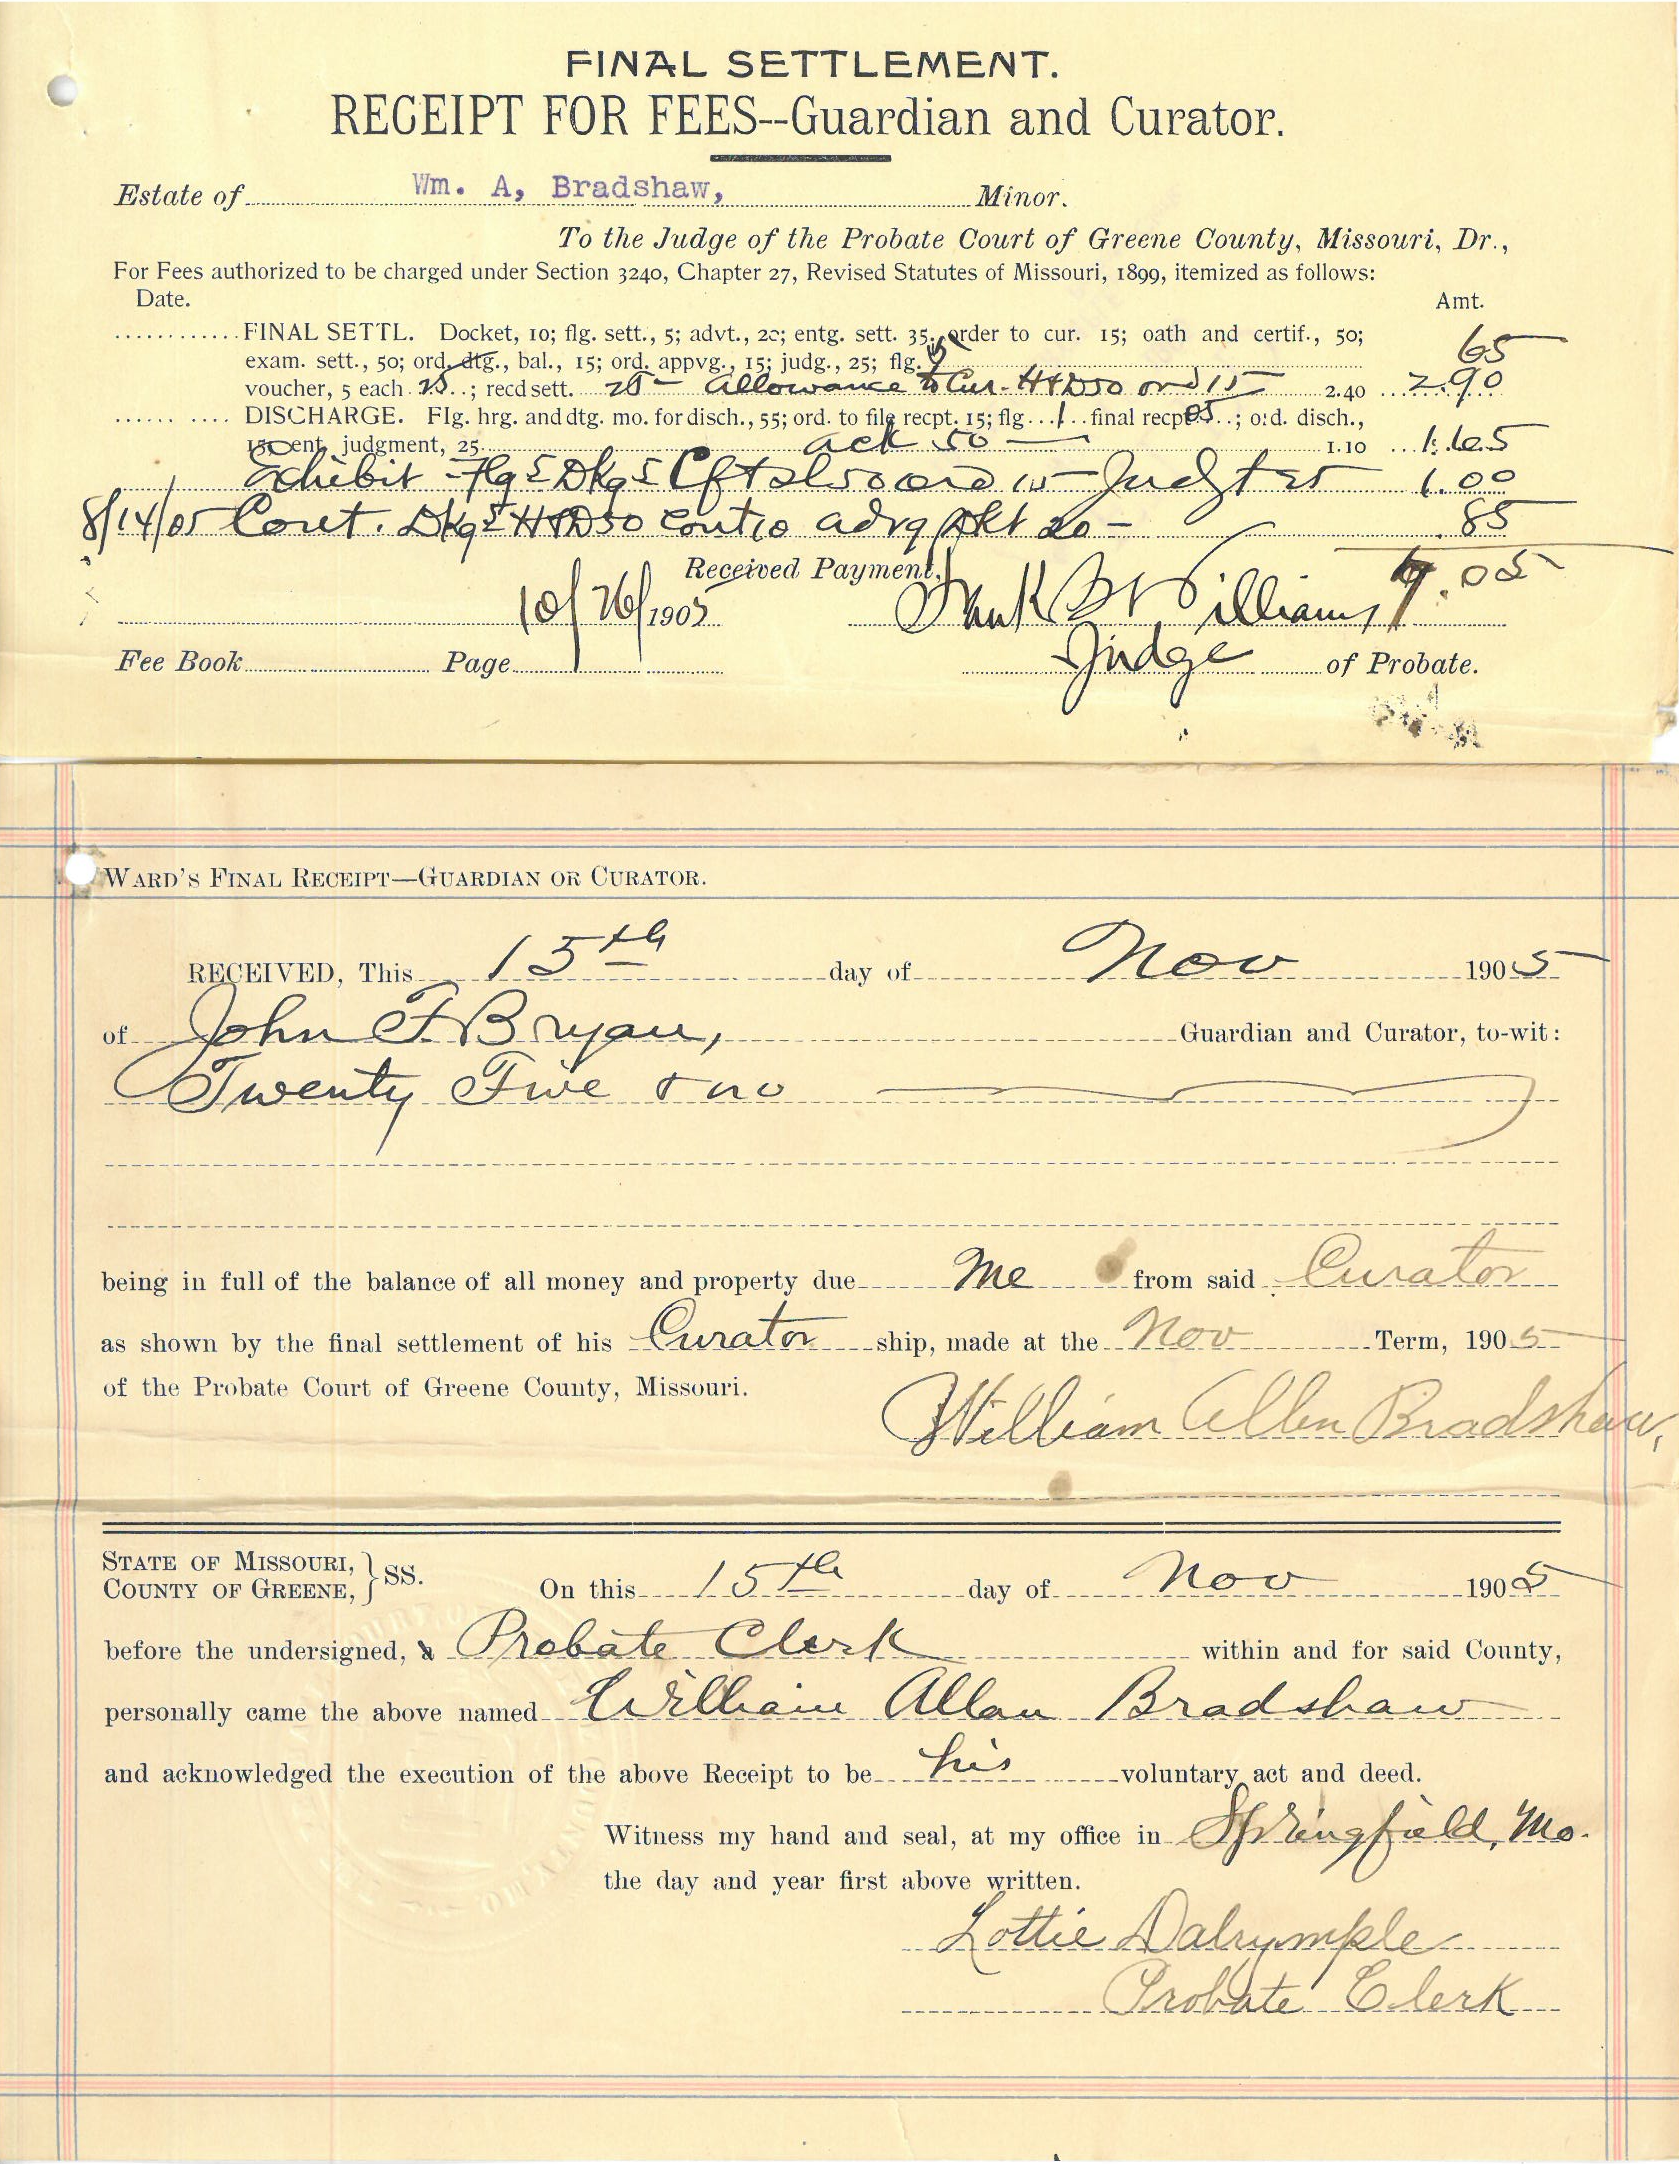 FINAL SETTLEMENT.
RECEIPT FOR FEES--Guardian and Curator.
Estate of Wm. A, Bradshaw, Minor.
To the Judge of the Probate Court of Greene County, Missouri, Dr.,
For Fees authorized to be charged under Section 3240, Chapter 27, Revised Statutes of Missouri, 1899, itemized as follows:
Date. Amt.
FINAL SETTL. Docket, 10; flg. sett., 5; advt., 20; entg. sett. 35, order to cur. 15; oath and certif., 50; 65
exam. sett., 50; ord. dtg., bal., 15; ord. appvg., 15; judg., 25; flg. 5
voucher, 5 each 25; recd sett. 20 Allowance to Cur. H+D 50 ord 15 2.40 2.90
DISCHARGE. Flg. hrg. and dtg. mo. for disch., 55; ord. to file recpt. 15; flg 1 final recpt 05; ord. disch.,
15 ent. judgment, 25 ack 50 1.10 1.65
Exhibit Flg 5 Dkg 5 Cft + sl 50 ord 15 Judgt 25 1.00
8/14/05 Cont. Dkg 5 H+D 50 Cont 10 adrg dkt 20 .85
Received Payment, 7.05
10/26/1905 Frank B Williams
Fee Book Page Judge of Probate.
WARD'S FINAL RECEIPT—GUARDIAN OR CURATOR.
RECEIVED, This 15th day of Nov 1905
of John F. Bryan, Guardian and Curator, to-wit:
Twenty Five & no
being in full of the balance of all money and property due me from said Curator
as shown by the final settlement of his Curator ship, made at the Nov Term, 1905
of the Probate Court of Greene County, Missouri.
William Allen Bradshaw,
STATE OF MISSOURI, } SS.
COUNTY OF GREENE, On this 15th day of Nov 1905
before the undersigned, a Probate Clerk within and for said County,
personally came the above named William Allan Bradshaw
and acknowledged the execution of the above Receipt to be his voluntary act and deed.
Witness my hand and seal, at my office in Springfield, Mo.
the day and year first above written.
Lottie Dalrymple
Probate Clerk